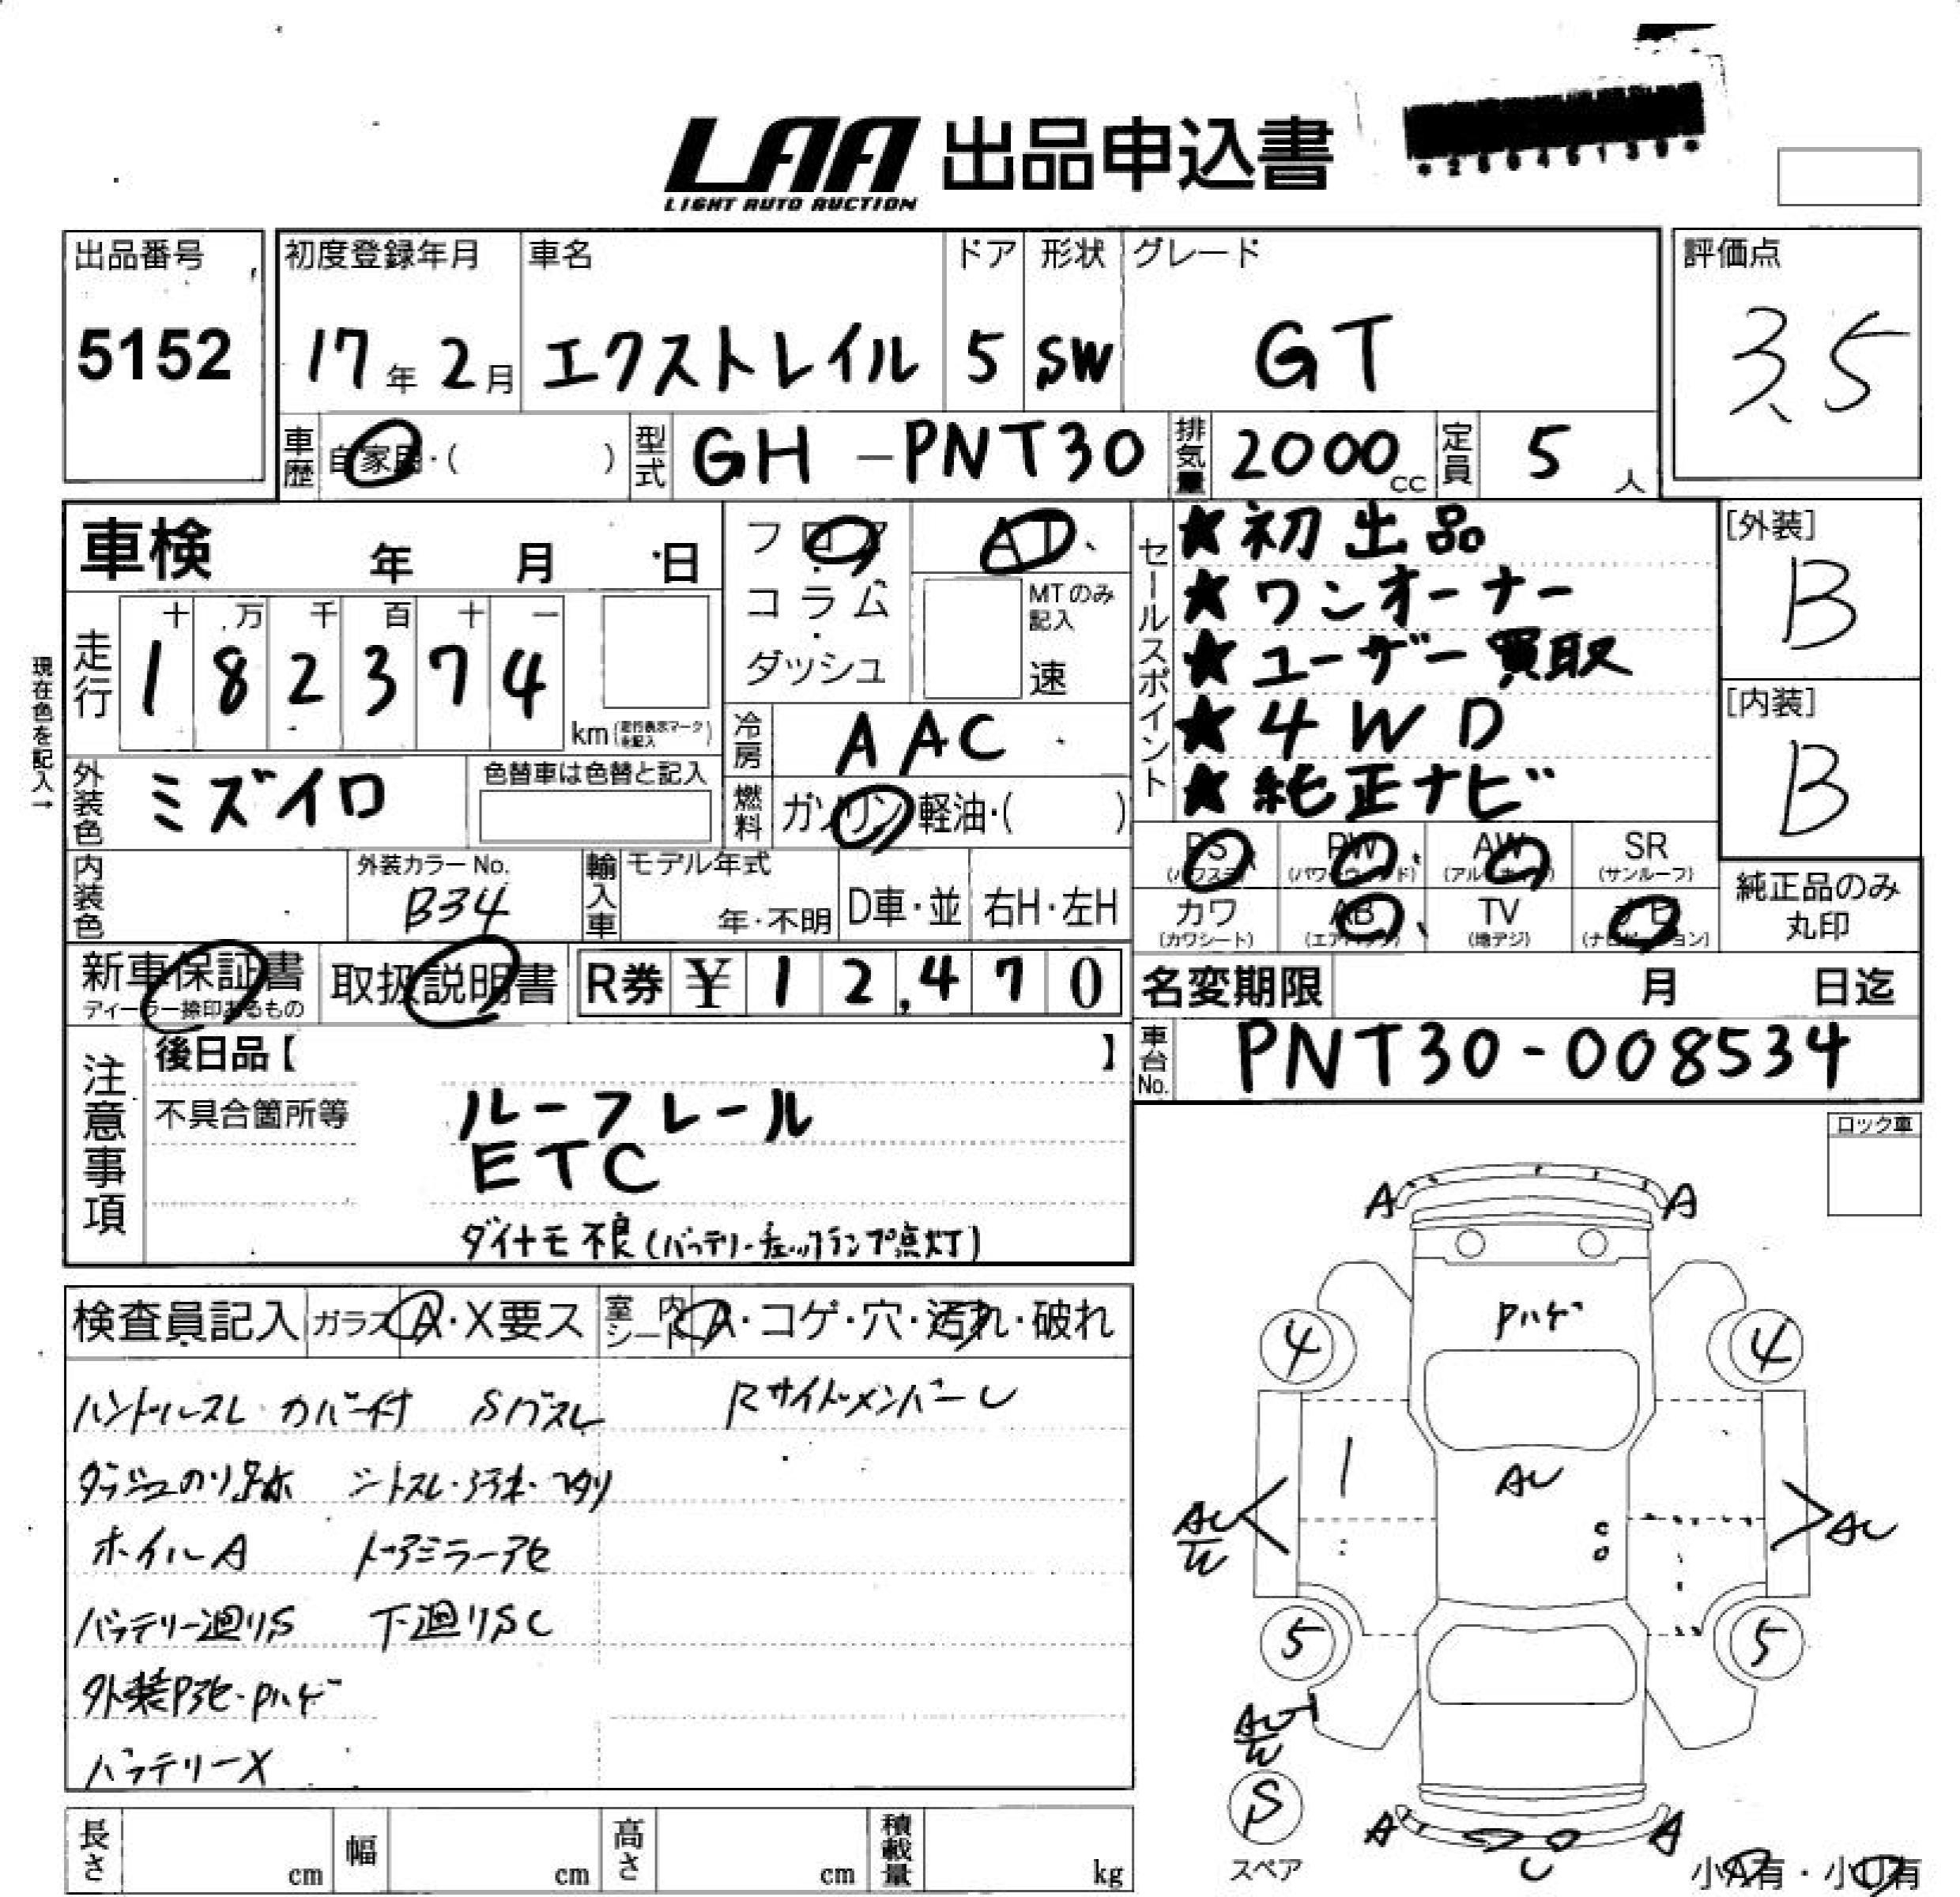 LAA 出品申込書
LIGHT AUTO AUCTION
出品番号 初度登録年月 車名 ドア 形状 グレード 評価点
5152 17年2月 エクストレイル 5 SW GT 3.5
車歴 自家用・( ) 型式 GH-PNT30 排気量 2000cc 定員 5人
車検 年 月 日
フロア
コラム
ダッシュ
AT
MTのみ記入
速
セールスポイント
★初出品
★ワンオーナー
★ユーザー買取
★4WD
★純正ナビ
[外装]
B
[内装]
B
現在色を記入→
走行
十 万 千 百 十 一
1 8 2 3 7 4 km(走行表示マークを記入)
冷房 AAC
外装色 ミズイロ 色替車は色替と記入
燃料 ガソリン 軽油・( )
PS PW AW SR
(パワステ) (パワーウィンド) (アルミホイル) (サンルーフ)
カワ AB TV ナビ
(カワシート) (エアバッグ) (地デジ) (ナビゲーション)
純正品のみ丸印
内装色 外装カラーNo. B34 輸入車 モデル年式 年・不明 D車・並 右H・左H
新車保証書 取扱説明書 R券 ¥12,470 名変期限 月 日迄
ディーラー捺印あるもの
車台No. PNT30-008534
注意事項
後日品【 】
不具合箇所等 ルーフレール
ETC
ダイナモ不良(バッテリーチェックランプ点灯)
ロック車
検査員記入 ガラス A・X要ス 室内シート A・コゲ・穴・汚れ・破れ
ハンドルスレ・カバー付 Sバスレ RサイドメンバーU
シートスレ・汚れ・
ホイルA ドアミラーアセ
バッテリー廻りS 下廻りSC
外装Pアセ・Pハゲ
バッテリーX
A A
Pハゲ
4 4
AU
AU
W
AU
5 5
W
S
スペア
A A
U
小A有・小U有
長さ cm 幅 cm 高さ cm 積載量 kg